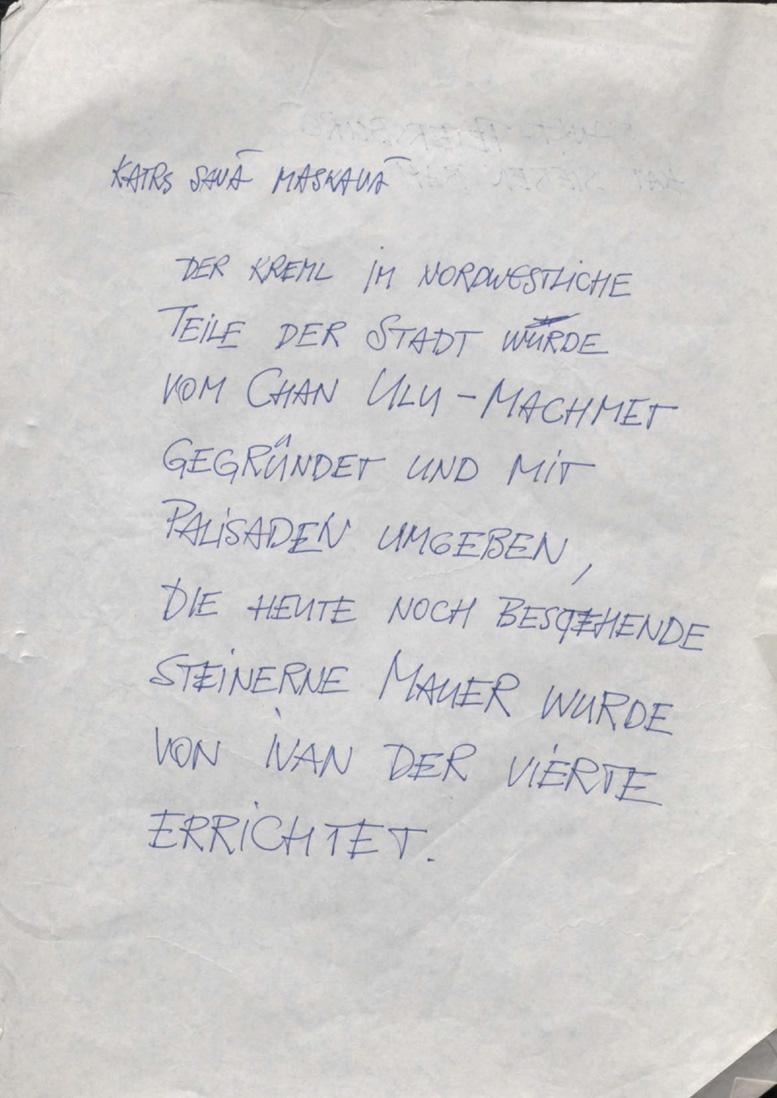 KATRS SAVĀ MASKAVĀ
DER KREML IM NORDWESTLICHE
TEILE DER STADT WURDE
VOM CHAN ULU-MACHMET
GEGRÜNDET UND MIT
PALISADEN UMGEBEN,
DIE HEUTE NOCH BESTEHENDE
STEINERNE MAUER WURDE
VON IVAN DER VIERTE
ERRICHTET.